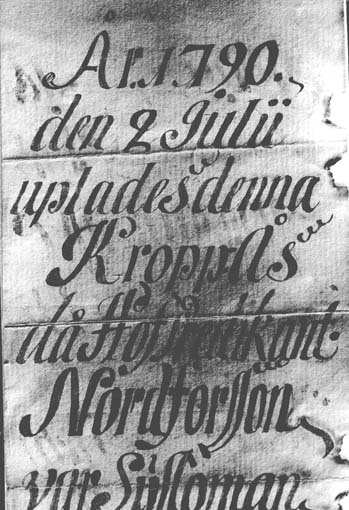 År.1790.
den 2 Julii
uplades denna
KroppÅs
då Hofpredikant:
Nordforsson
var Sÿsloman